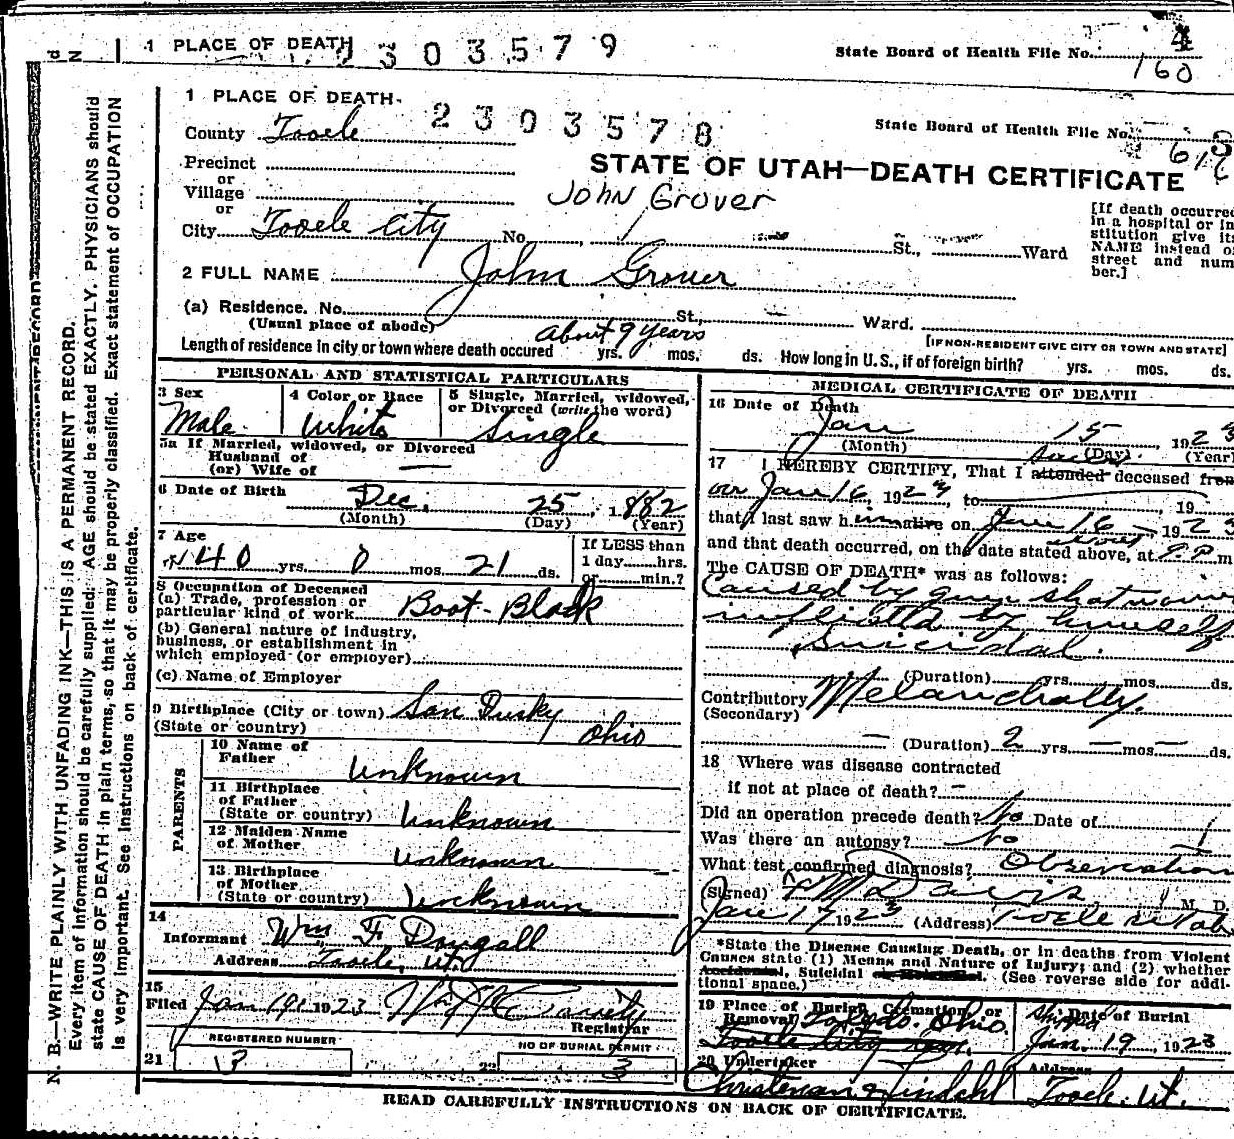 1 PLACE OF DEATH 2303579
State Board of Health File No. 4
160
1 PLACE OF DEATH 2303578
State Board of Health File No.
County Tooele
STATE OF UTAH—DEATH CERTIFICATE
Precinct
or
Village
John Grover
or
City Tooele City No. St., Ward
[If death occurred
in a hospital or in
stitution give its
NAME instead of
street and num
ber.]
2 FULL NAME John Grover
(a) Residence. No. St., Ward.
(Usual place of abode)
[IF NON-RESIDENT GIVE CITY OR TOWN AND STATE]
Length of residence in city or town where death occured about 9 years yrs. mos. ds. How long in U.S., if of foreign birth? yrs. mos. ds.
PERSONAL AND STATISTICAL PARTICULARS
3 Sex Male
4 Color or Race White
5 Single, Married, widowed,
or Divorced (write the word)
Single
5a If Married, widowed, or Divorced
Husband of
(or) Wife of —
6 Date of Birth Dec. 25, 1882
(Month) (Day) (Year)
7 Age
40 yrs. 0 mos. 21 ds.
If LESS than
1 day hrs.
or min.?
8 Occupation of Deceased
(a) Trade, profession or
particular kind of work Boot-Black
(b) General nature of industry,
business, or establishment in
which employed (or employer)
(c) Name of Employer
9 Birthplace (City or town) San Dusky
(State or country) Ohio
PARENTS
10 Name of
Father Unknown
11 Birthplace
of Father
(State or country) Unknown
12 Maiden Name
of Mother Unknown
13 Birthplace
of Mother
(State or country) Unknown
14
Informant Wm F Dougall
Address Tooele, Ut.
15
Filed Jan 19 1923
Registrar
REGISTERED NUMBER
21 13
NO OF BURIAL PERMIT
22 3
MEDICAL CERTIFICATE OF DEATH
16 Date of Death
Jan 15, 1923
(Month) (Day) (Year)
17 I HEREBY CERTIFY, That I attended deceased from
on Jan 16, 1923, to 19
that I last saw him alive on Jan 16 1923
and that death occurred, on the date stated above, at about 9 P. m
The CAUSE OF DEATH* was as follows:
Caused by gun shot wound
inflicted by himself
Suicidal.
(Duration) yrs. mos. ds.
Contributory Melancholly.
(Secondary)
— (Duration) 2 yrs. — mos — ds.
18 Where was disease contracted
if not at place of death? —
Did an operation precede death? No Date of
Was there an autopsy? No
What test confirmed diagnosis? Observation
(Signed) F M Davis M. D.
Jan 17 1923 (Address) Tooele Utah
*State the Disease Causing Death, or in deaths from Violent
Causes state (1) Means and Nature of Injury; and (2) whether
Accidental, Suicidal or Homicidal. (See reverse side for addi-
tional space.)
19 Place of Burial Cremation, or
Removal Toledo. Ohio.
Tooele City
Shipped
Date of Burial
Jan. 19, 1923
20 Undertaker
Christensen & Lindahl
Address
Tooele. Ut.
READ CAREFULLY INSTRUCTIONS ON BACK OF CERTIFICATE.
N. B.—WRITE PLAINLY WITH UNFADING INK—THIS IS A PERMANENT RECORD.
Every item of information should be carefully supplied: AGE should be stated EXACTLY. PHYSICIANS should
state CAUSE OF DEATH in plain terms, so that it may be properly classified. Exact statement of OCCUPATION
is very important. See instructions on back of certificate.